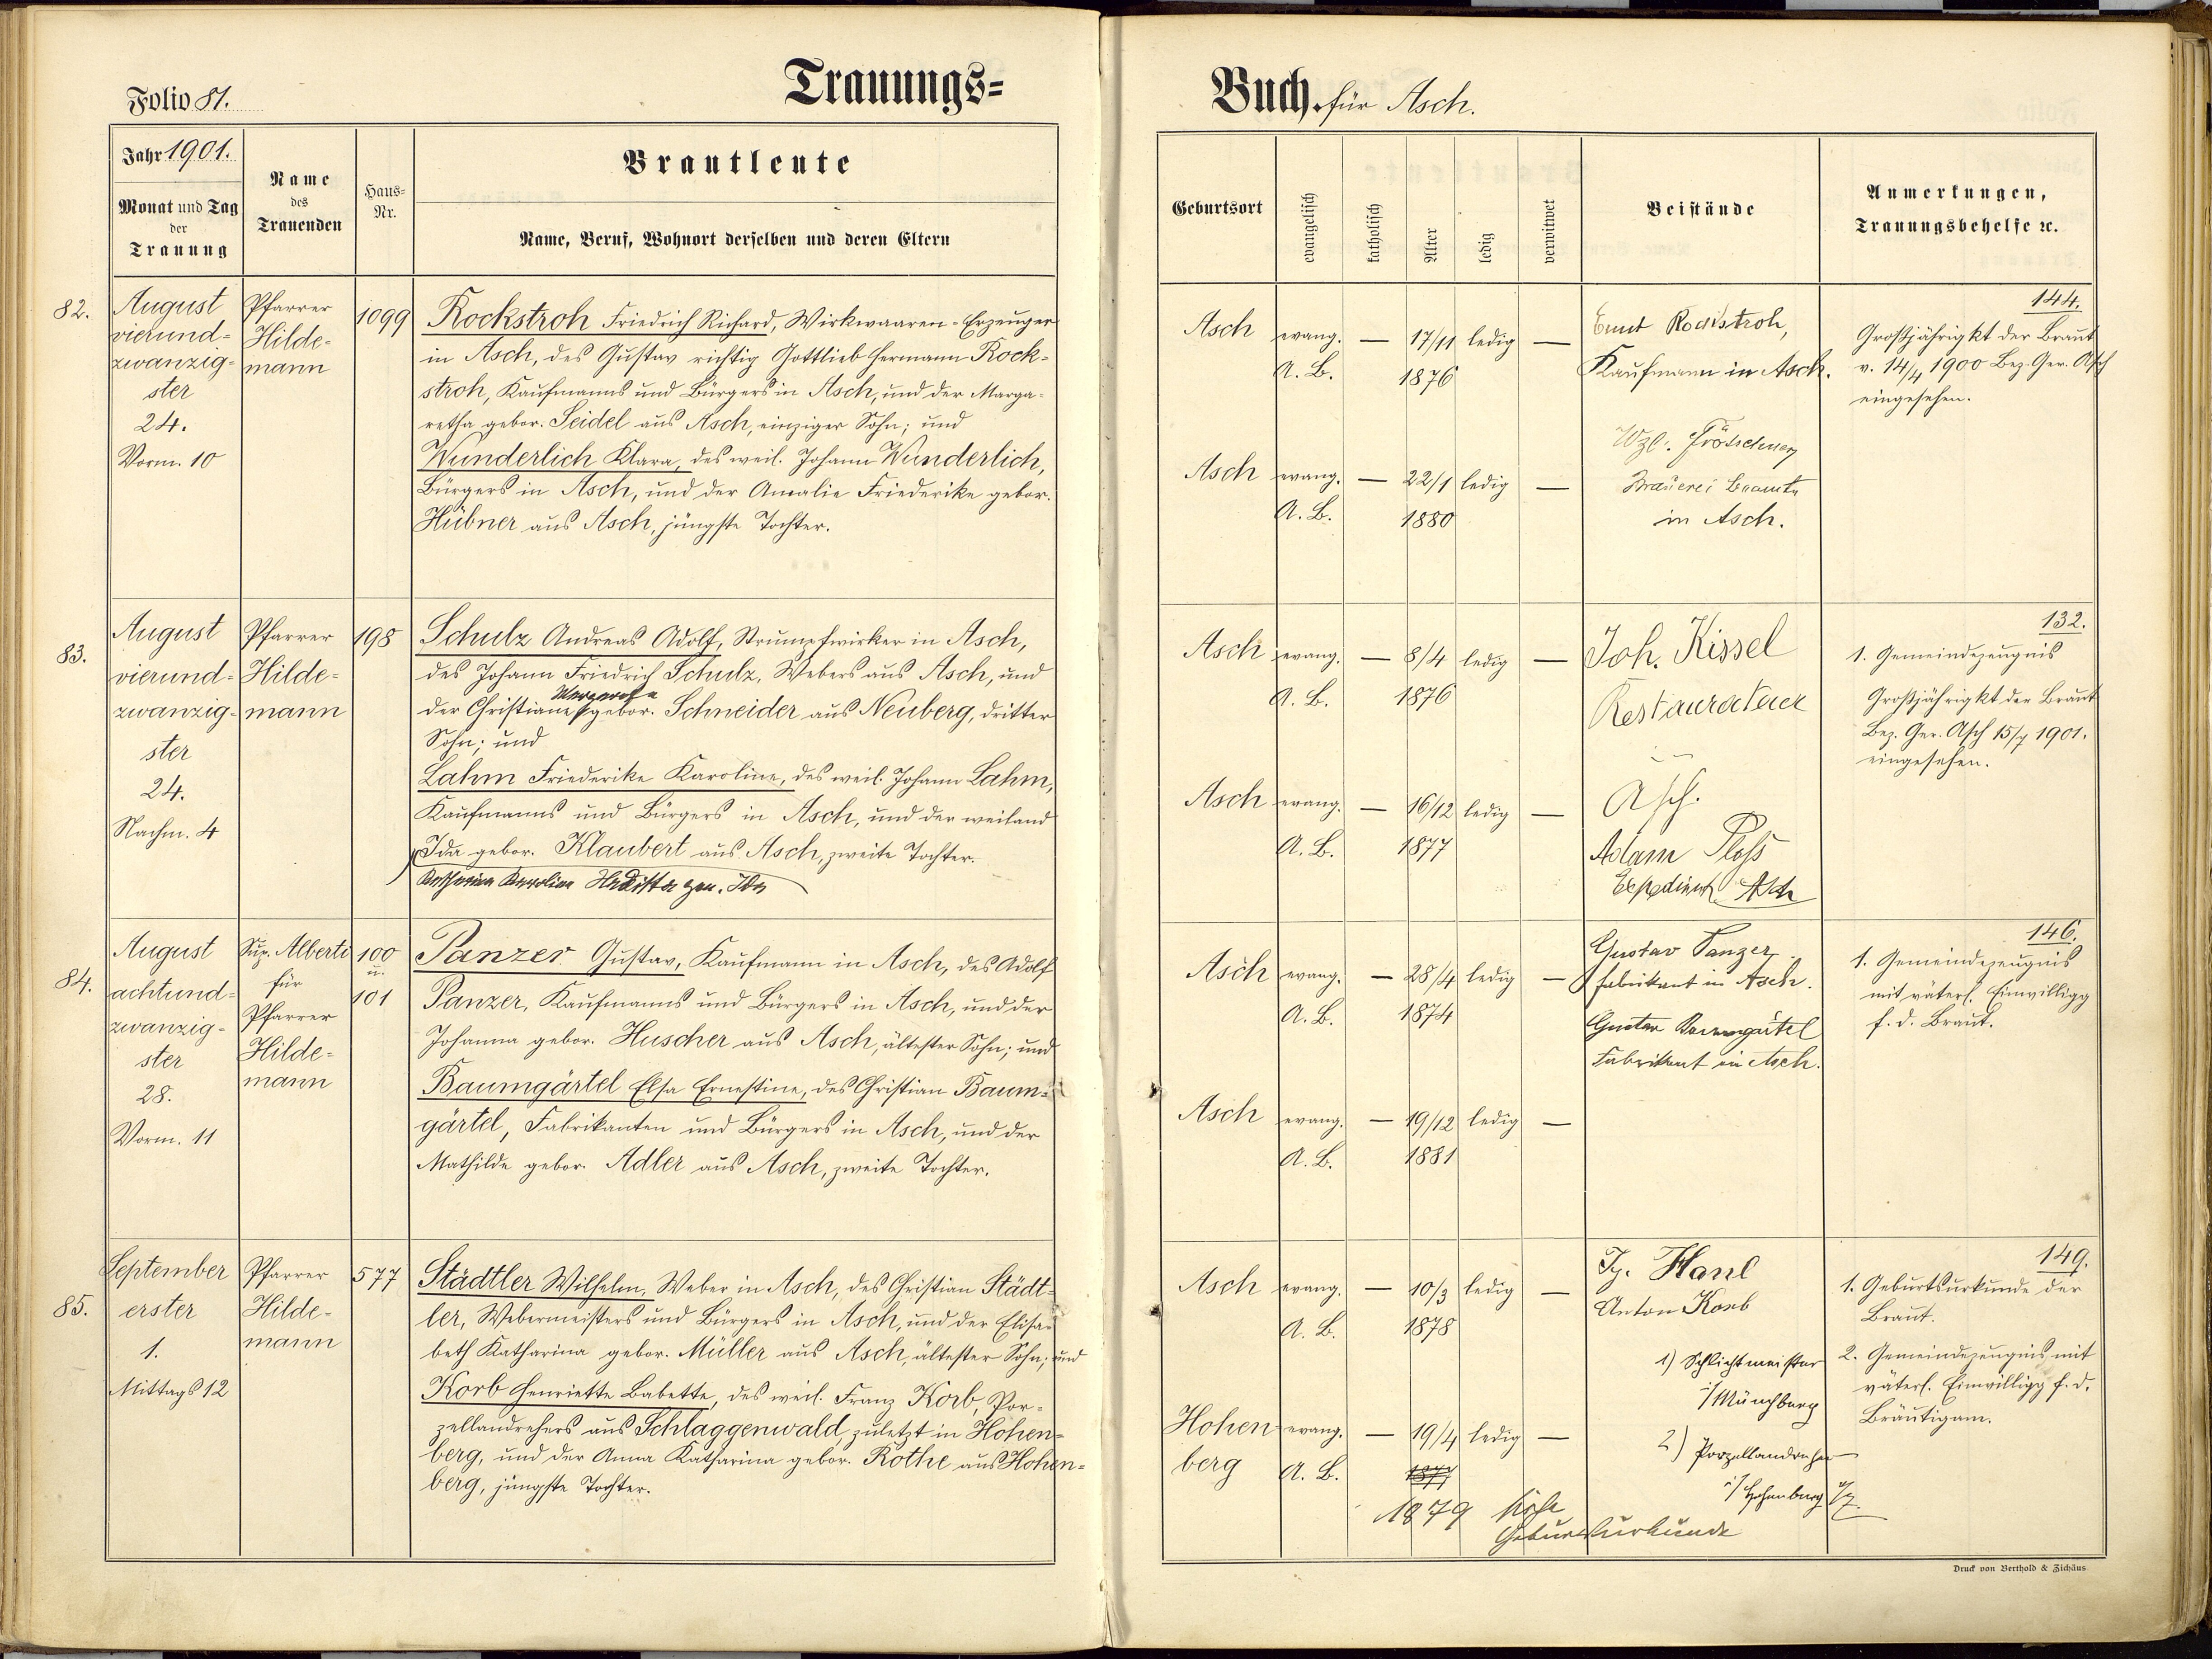 Folio 81.
Trauungs-
Jahr 1901.
Monat und Tag
der
Trauung
Name
des
Trauenden
Haus-
Nr.
Brautleute
Name, Beruf, Wohnort derselben und deren Eltern
82.
August
vierund-
zwanzig-
ster
24.
Vorm. 10
Pfarrer
Hilde-
mann
1099
Rockstroh Friedrich Richard, Wirkwaaren-Erzeuger
in Asch, des Gustav richtig Gottlieb Hermann Rock-
stroh, Kaufmanns und Bürgers in Asch, und der Marga-
retha gebor. Seidel aus Asch, einziger Sohn; und
Wunderlich Klara, des weil. Johann Wunderlich,
Bürgers in Asch, und der Amalie Friederike gebor.
Hübner aus Asch, jüngste Tochter.
83.
August
vierund-
zwanzig-
ster
24.
Nachm. 4
Pfarrer
Hilde-
mann
198
Schulz Andreas Adolf, Strumpfwirker in Asch,
des Johann Friedrich Schulz, Webers aus Asch, und
Margarethe
der Christiane gebor. Schneider aus Neuberg, dritter
Sohn; und
Lahm Friederike Karoline, des weil. Johann Lahm,
Kaufmanns und Bürgers in Asch, und der weiland
Ida gebor. Klaubert aus Asch, zweite Tochter.
Katharina Karolina gen. Ida
84.
August
achtund-
zwanzig-
ster
28.
Vorm. 11
Sup. Alberti
für
Pfarrer
Hilde-
mann
100
u.
101
Panzer Gustav, Kaufmann in Asch, des Adolf
Panzer, Kaufmanns und Bürgers in Asch, und der
Johanna gebor. Huscher aus Asch, ältester Sohn; und
Baumgärtel Elsa Ernestine, des Christian Baum-
gärtel, Fabrikanten und Bürgers in Asch, und der
Mathilde gebor. Adler aus Asch, zweite Tochter.
85.
September
erster
1.
Mittags 12
Pfarrer
Hilde-
mann
577
Städtler Wilhelm, Weber in Asch, des Christian Städt-
ler, Webermeisters und Bürgers in Asch, und der Elisa-
beth Katharina gebor. Müller aus Asch, ältester Sohn; und
Korb Henriette Babette, des weil. Franz Korb, Por-
zellandrehers aus Schlaggenwald, zuletzt in Hohen-
berg, und der Anna Katharina gebor. Rothe aus Hohen-
berg, jüngste Tochter.
Buch für Asch.
Geburtsort
evangelisch
katholisch
Alter
ledig
verwitwet
Beistände
Anmerkungen,
Trauungsbehelfe ꝛc.
Asch evang. — 17/11 ledig —
A. B. 1876
Asch evang. — 22/1 ledig —
A. B. 1880
Ernst Rockstroh,
Kaufmann in Asch.
Wzl. Frötschner
Brauerei Beamte
in Asch.
144.
Großjährigkt der Braut
v. 14/4 1900 Bez. Ger. Asch
eingesehen.
Asch evang. — 8/4 ledig —
A. B. 1876
Asch evang. — 16/12 ledig —
A. B. 1877
Joh. Kissel
Restaurateur
Asch.
Adam Ploß
Expedient Asch
132.
1. Gemeindezeugnis
Großjährigkt der Braut
Bez. Ger. Asch 15/7 1901.
eingesehen.
Asch evang. — 28/4 ledig —
A. B. 1874
Asch evang. — 19/12 ledig —
A. B. 1881
Gustav Panzer
Fabrikant in Asch.
Gustav Baumgärtel
Fabrikant in Asch.
146.
1. Gemeindezeugnis
mit väterl. Einwilligg
f. d. Braut.
Asch evang. — 10/3 ledig —
A. B. 1878
Hohen evang. — 19/4 ledig —
berg A. B. 1877
1879 siehe
Geburtsurkunde
Ig. Hanl
Anton Korb
1) Schlichtmeister
i/ Münchberg
2) Porzellandreher
i/ Hohenberg
149.
1. Geburtsurkunde der
Braut.
2. Gemeindezeugnis mit
väterl. Einwilligg f. d.
Bräutigam.
Druck von Berthold & Zichäus